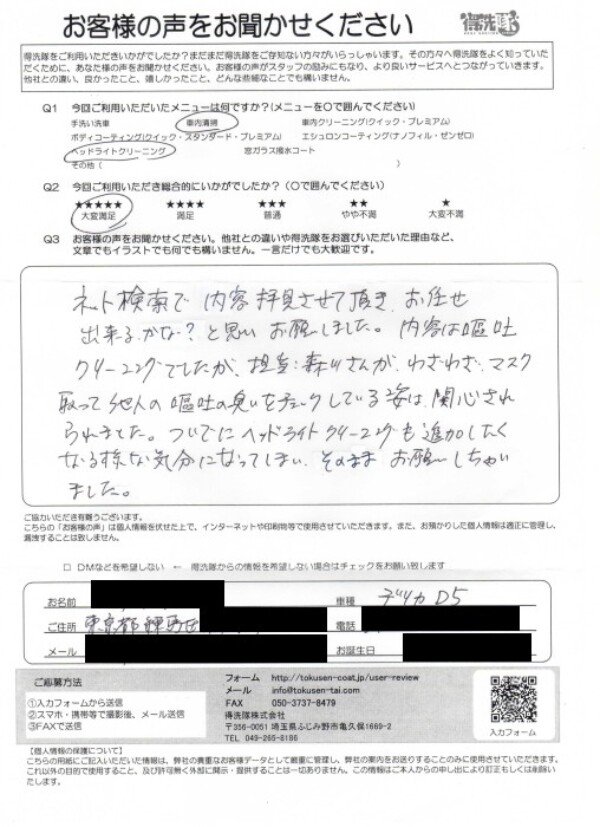 お客様の声をお聞かせください
得洗隊
得洗隊をご利用いただきいかがでしたか?まだまだ得洗隊をご存知ない方々がいらっしゃいます。その方々へ得洗隊をよく知っていた
だくために、あなた様の声をお聞かせください。お客様の声がスタッフの励みにもなり、より良いサービスへとつながっていきます。
他社との違い、良かったこと、嬉しかったこと、どんな些細なことでも構いません。
Q1 今回ご利用いただいたメニューは何ですか?(メニューを〇で囲んでください)
手洗い洗車 車内清掃 車内クリーニング(クイック・プレミアム)
ボディコーティング(クイック・スタンダード・プレミアム) エシュロンコーティング(ナノフィル・ゼンゼロ)
ヘッドライトクリーニング 窓ガラス撥水コート
その他( )
Q2 今回ご利用いただき総合的にいかがでしたか?(〇で囲んでください)
★★★★★ ★★★★ ★★★ ★★ ★
大変満足 満足 普通 やや不満 大変不満
Q3 お客様の声をお聞かせください。他社との違いや得洗隊をお選びいただいた理由など、
文章でもイラストでも何でも構いません。一言だけでも大歓迎です。
ネット検索で 内容 拝見させて頂き、お任せ
出来るかな?と思い お願いしました。内容は嘔吐
クリーニングでしたが、担当:森川さんが、わざわざ、マスク
取って他人の嘔吐の臭いをチェックしている姿は、関心させ
られました。ついでにヘッドライトクリーニングも追加したく
なる様な気分になってしまい、そのまま お願いしちゃい
ました。
ご協力いただき有難うございます。
こちらの「お客様の声」は個人情報を伏せた上で、インターネットや印刷物等で使用させていただきます。また、お預かりした個人情報は適正に管理し、
漏洩することは致しません。
□ DMなどを希望しない ← 得洗隊からの情報を希望しない場合はチェックをお願い致します
お名前 車種 デリカD5
ご住所 東京都練馬区 電話
メール お誕生日
ご応募方法
①入力フォームから送信
②スマホ・携帯等で撮影後、メール送信
③FAXで送信
フォーム http://tokusen-coat.jp/user-review
メール info@tokusen-tai.com
FAX 050-3737-8479
得洗隊株式会社
〒356-0051 埼玉県ふじみ野市亀久保1669-2
TEL 049-265-8186
入力フォーム
【個人情報の保護について】
こちらの用紙にご記入いただいた情報は、弊社の貴重なお客様データとして厳重に管理し、弊社の案内をお送りすることのみに使用させていただきます。
これ以外の目的で使用すること、及び許可無く外部に開示・提供することは一切ありません。この情報はご本人からの申し出により訂正もしくは削除い
たします。